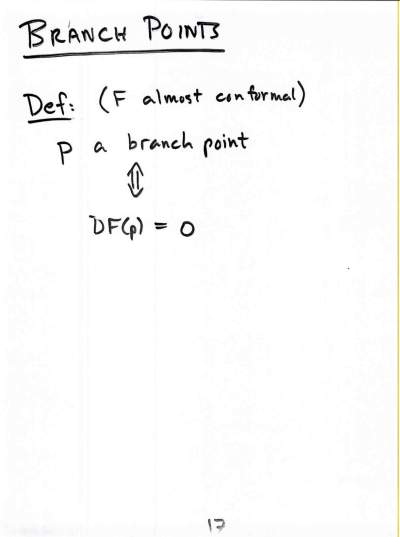 BRANCH POINTS
Def: (F almost conformal)
p a branch point
⇕
DF(p) = 0
17